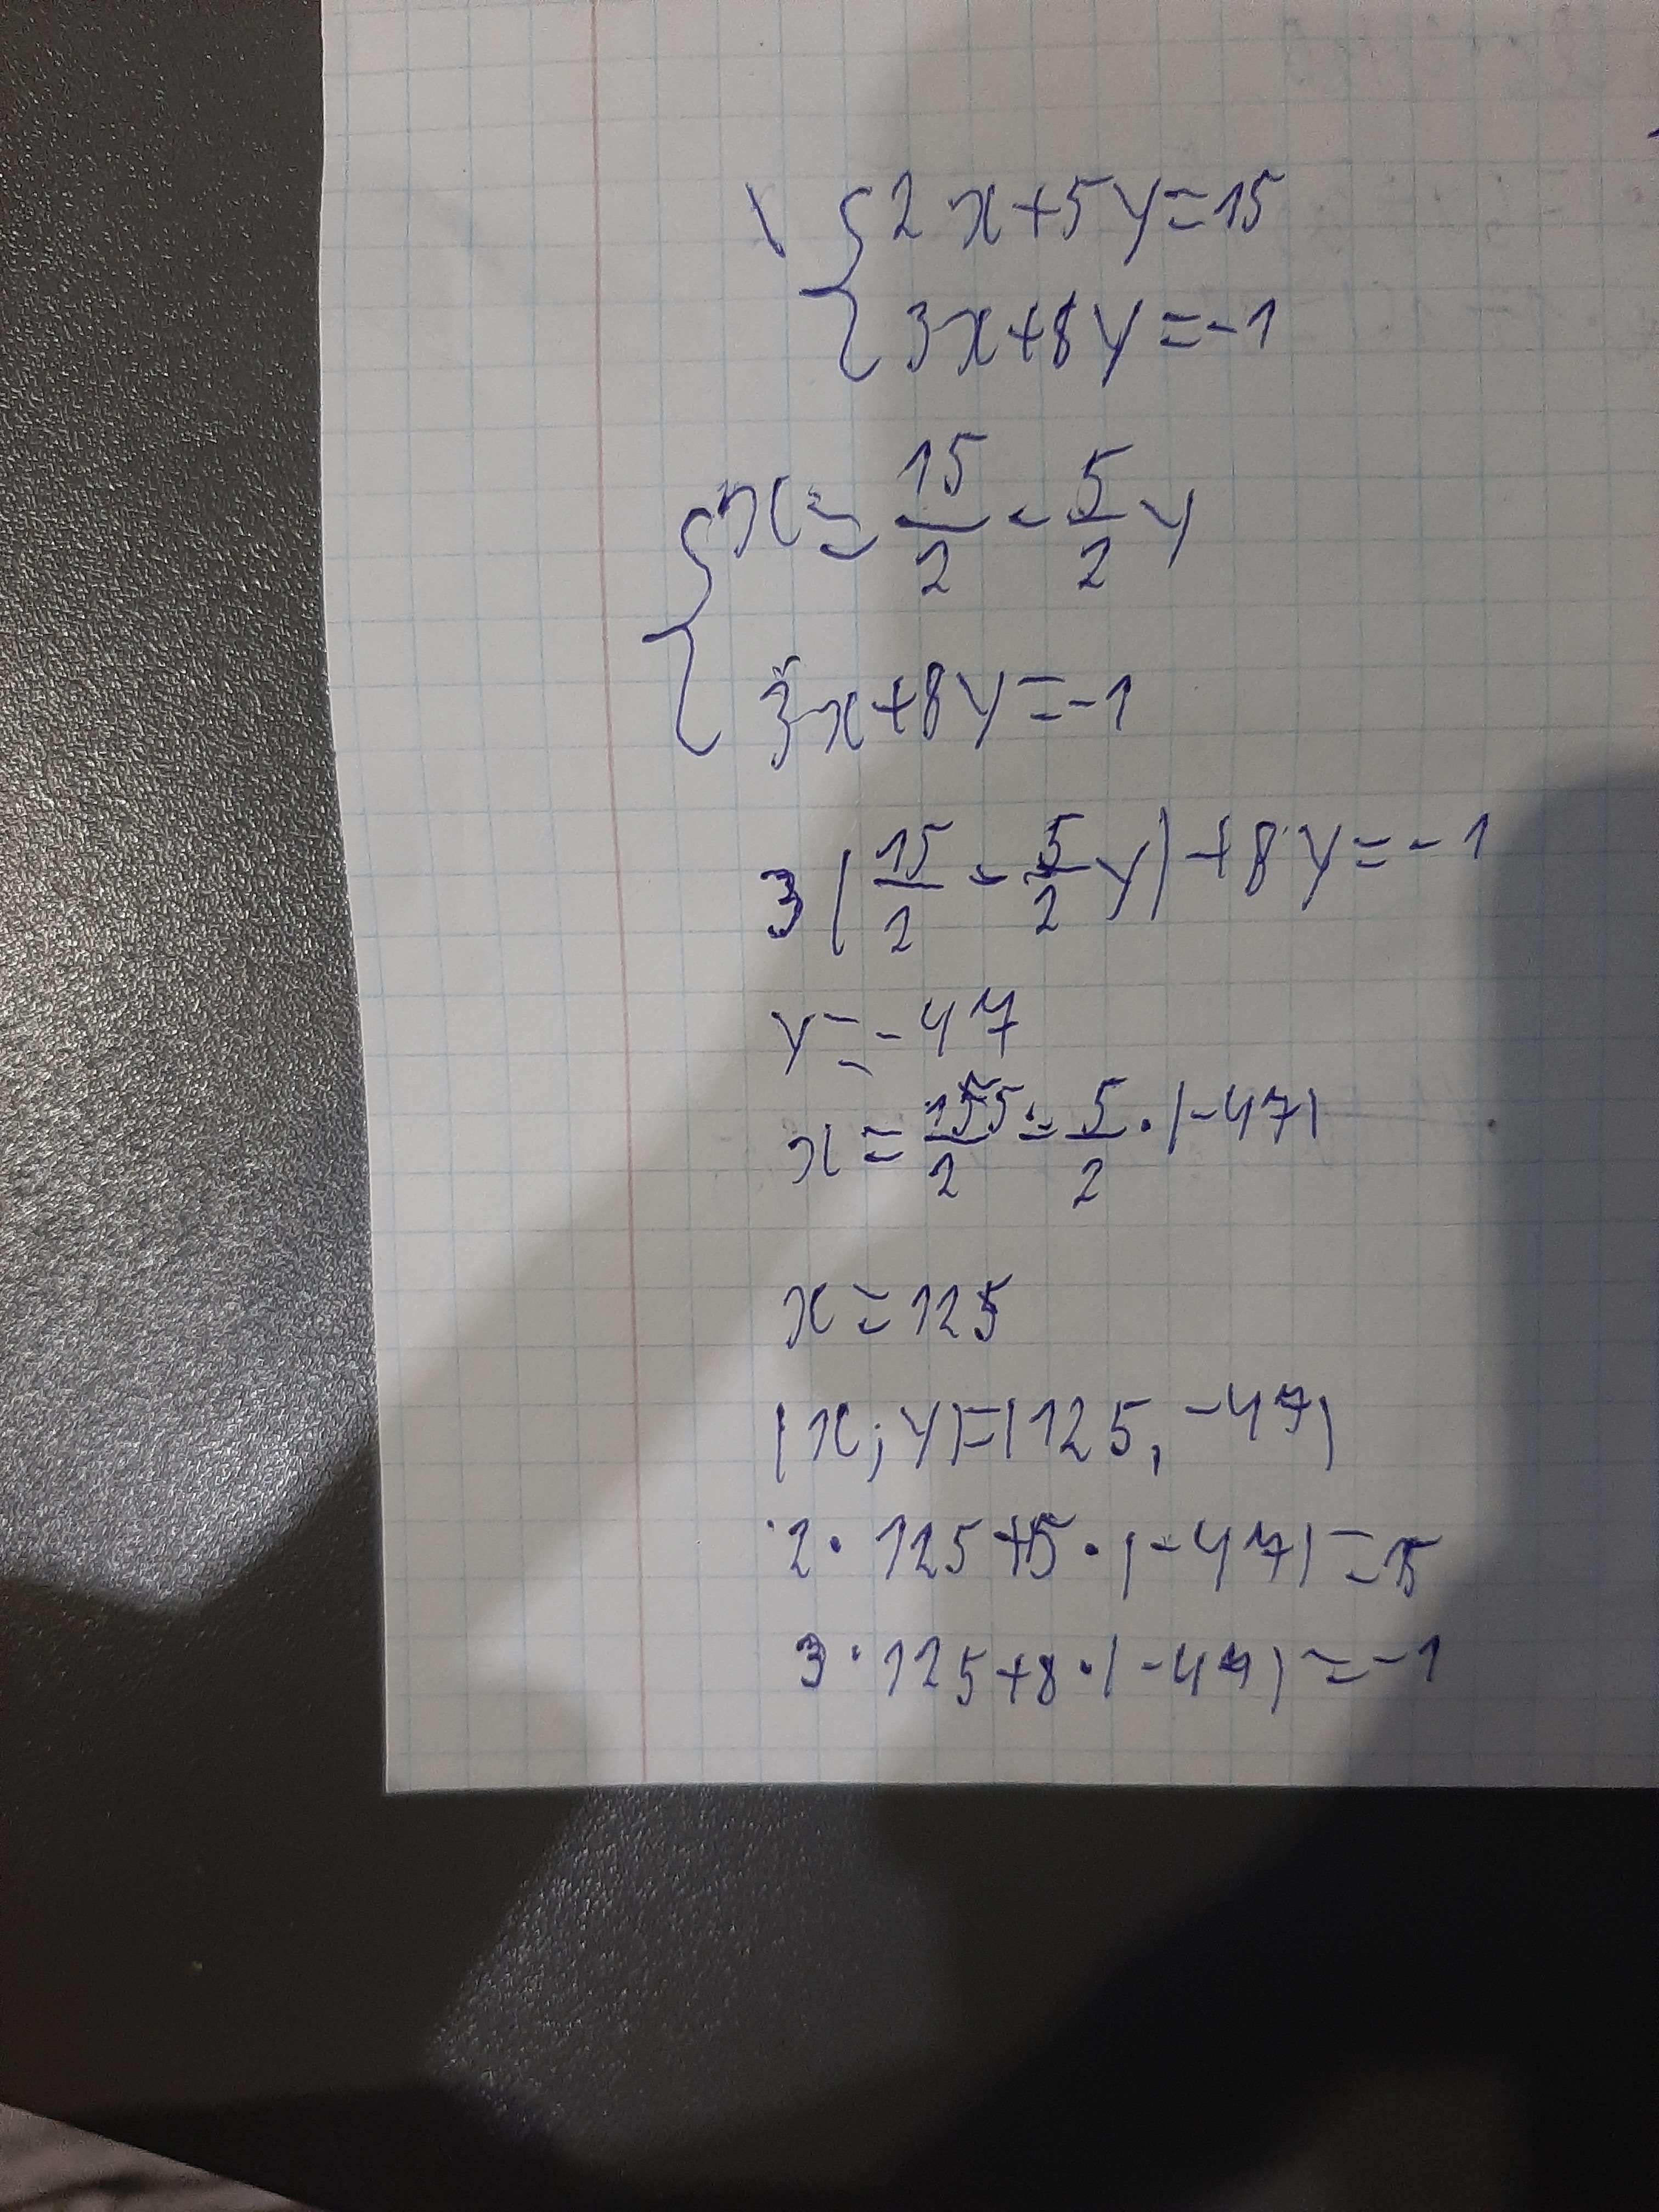 \ { 2x+5y=15
3x+8y=-1
{ x = 15/2 - 5/2 y
3x+8y=-1
3(15/2 - 5/2 y)+8y=-1
y=-47
x = 15/2 - 5/2 · (-47)
x=125
(x; y)=(125, -47)
2· 125+5·(-47)=15
3·125+8·(-47)=-1